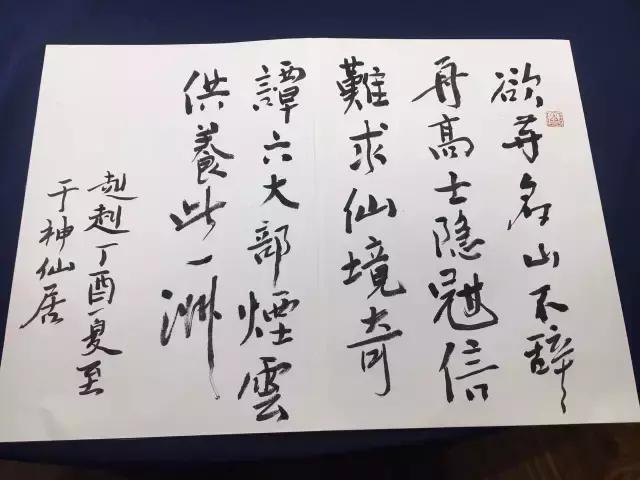 欲尋名山不辭
舟高士隐信
難求仙境奇
譚六大部煙雲
供養此一洲
赳赳丁酉夏至
于神仙居